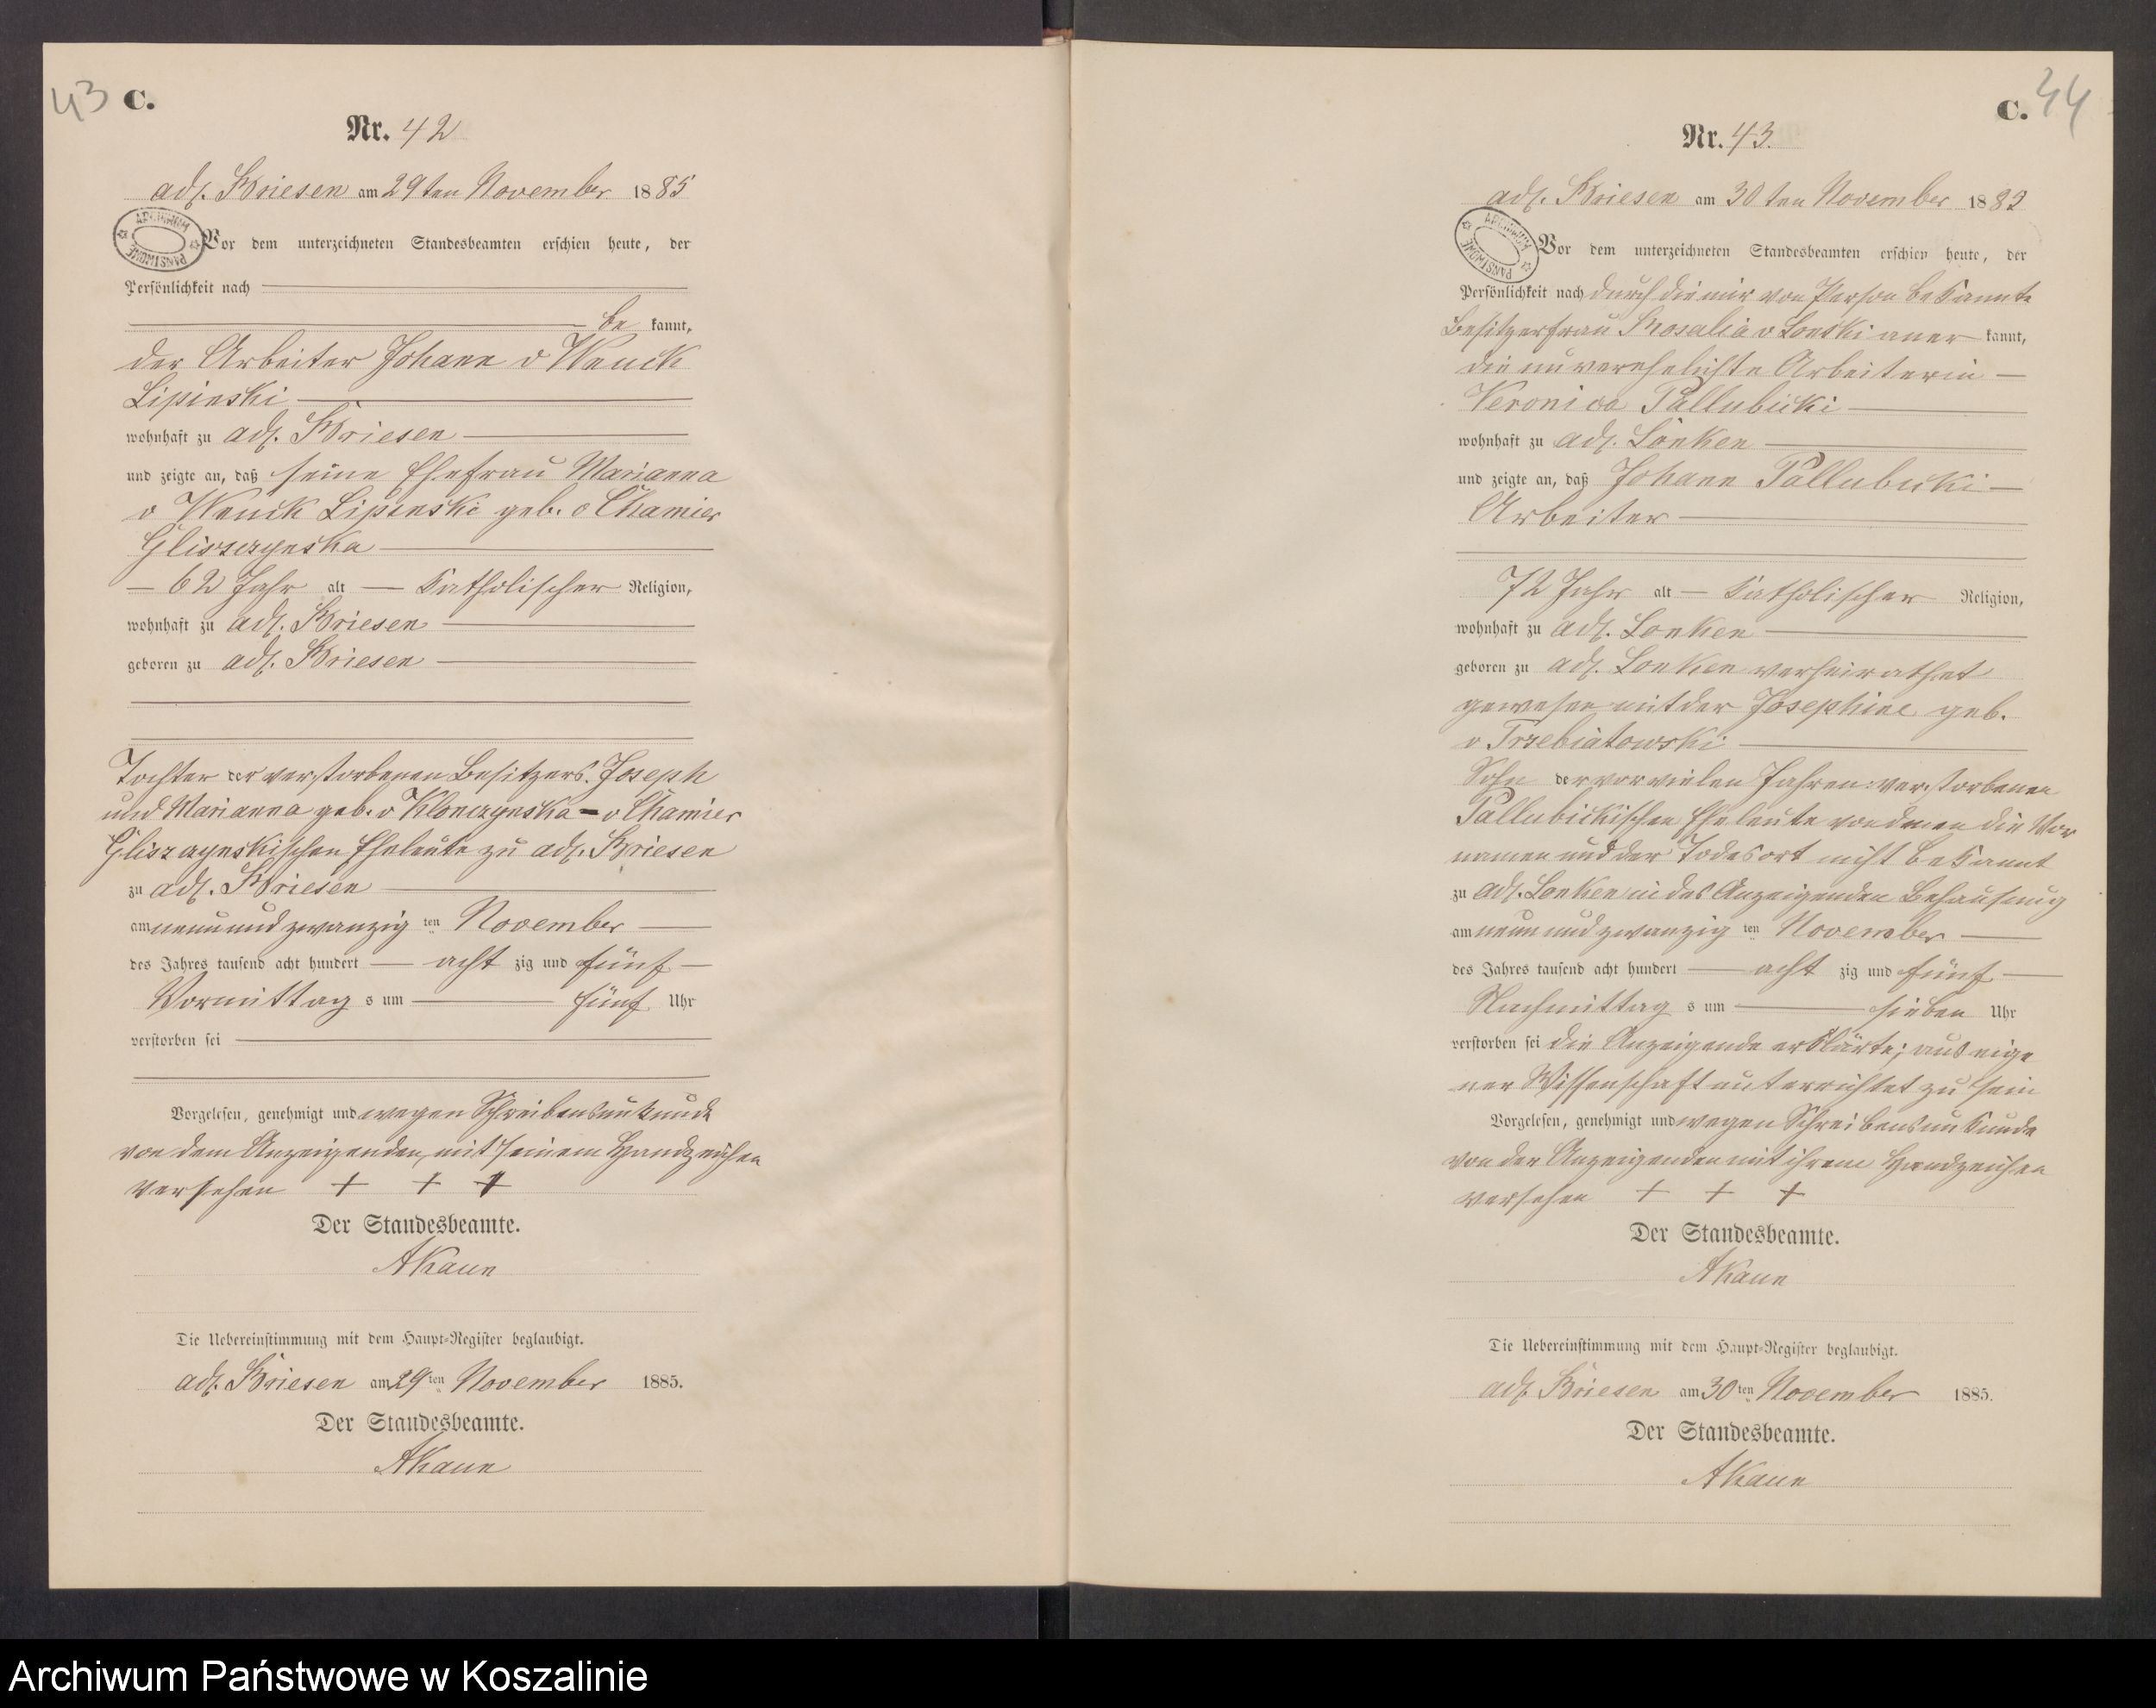 43 C.
Nr. 42
adl. Briesen am 29ten November 1885
ARCHIWUM PAŃSTWOWE
Vor dem unterzeichneten Standesbeamten erschien heute, der
Persönlichkeit nach
be kannt,
der Arbeiter Johann v Wenck
Lipinski
wohnhaft zu adl. Briesen
und zeigte an, daß seine Ehefrau Marianna
v Wenck Lipinski geb. v Chamier
Gliszczynska
62 Jahr alt katholischer Religion,
wohnhaft zu adl. Briesen
geboren zu adl. Briesen
Tochter der verstorbenen Besitzers. Joseph
und Marianna geb. v Klonczynska - v Chamier
Gliszczynskischen Eheleute zu adl. Briesen
zu adl. Briesen
am neunundzwanzig ten November
des Jahres tausend acht hundert acht zig und fünf
Vormittag s um fünf Uhr
verstorben sei
Vorgelesen, genehmigt und wegen Schreibensunkunde
von dem Anzeigenden, mit seinem Handzeichen
versehen + + +
Der Standesbeamte.
AKaun
Die Uebereinstimmung mit dem Haupt-Register beglaubigt.
adl. Briesen am 29ten November 1885.
Der Standesbeamte.
AKaun
C. 44
Nr. 43.
adl. Briesen am 30ten November 1885
ARCHIWUM PAŃSTWOWE
Vor dem unterzeichneten Standesbeamten erschien heute, der
Persönlichkeit nach durch die mir von Person bekannte
Besitzerfrau Rosalia v Lonski aner kannt,
die unverehelichte Arbeiterin
Veronica Pallubicki
wohnhaft zu adl. Lonken
und zeigte an, daß Johann Pallubicki
Arbeiter
72 Jahr alt katholischer Religion,
wohnhaft zu adl. Lonken
geboren zu adl. Lonken verheirathet
gewesen mit der Josephine geb.
v Trzebiatowski
Sohn der vor vielen Jahren verstorbenen
Pallubickischen Eheleute von denen die Vor
namen und der Todesort nicht bekannt
zu adl. Lonken in des Anzeigenden Behausung
am neunundzwanzig ten November
des Jahres tausend acht hundert acht zig und fünf
Nachmittag s um sieben Uhr
verstorben sei die Anzeigende erklärte; aus eige
ner Wissenschaft unterrichtet zu sein
Vorgelesen, genehmigt und wegen Schreibensunkunde
von der Anzeigenden mit ihrem Handzeichen
versehen + + +
Der Standesbeamte.
AKaun
Die Uebereinstimmung mit dem Haupt-Register beglaubigt.
adl. Briesen am 30ten November 1885.
Der Standesbeamte.
AKaun
Archiwum Państwowe w Koszalinie